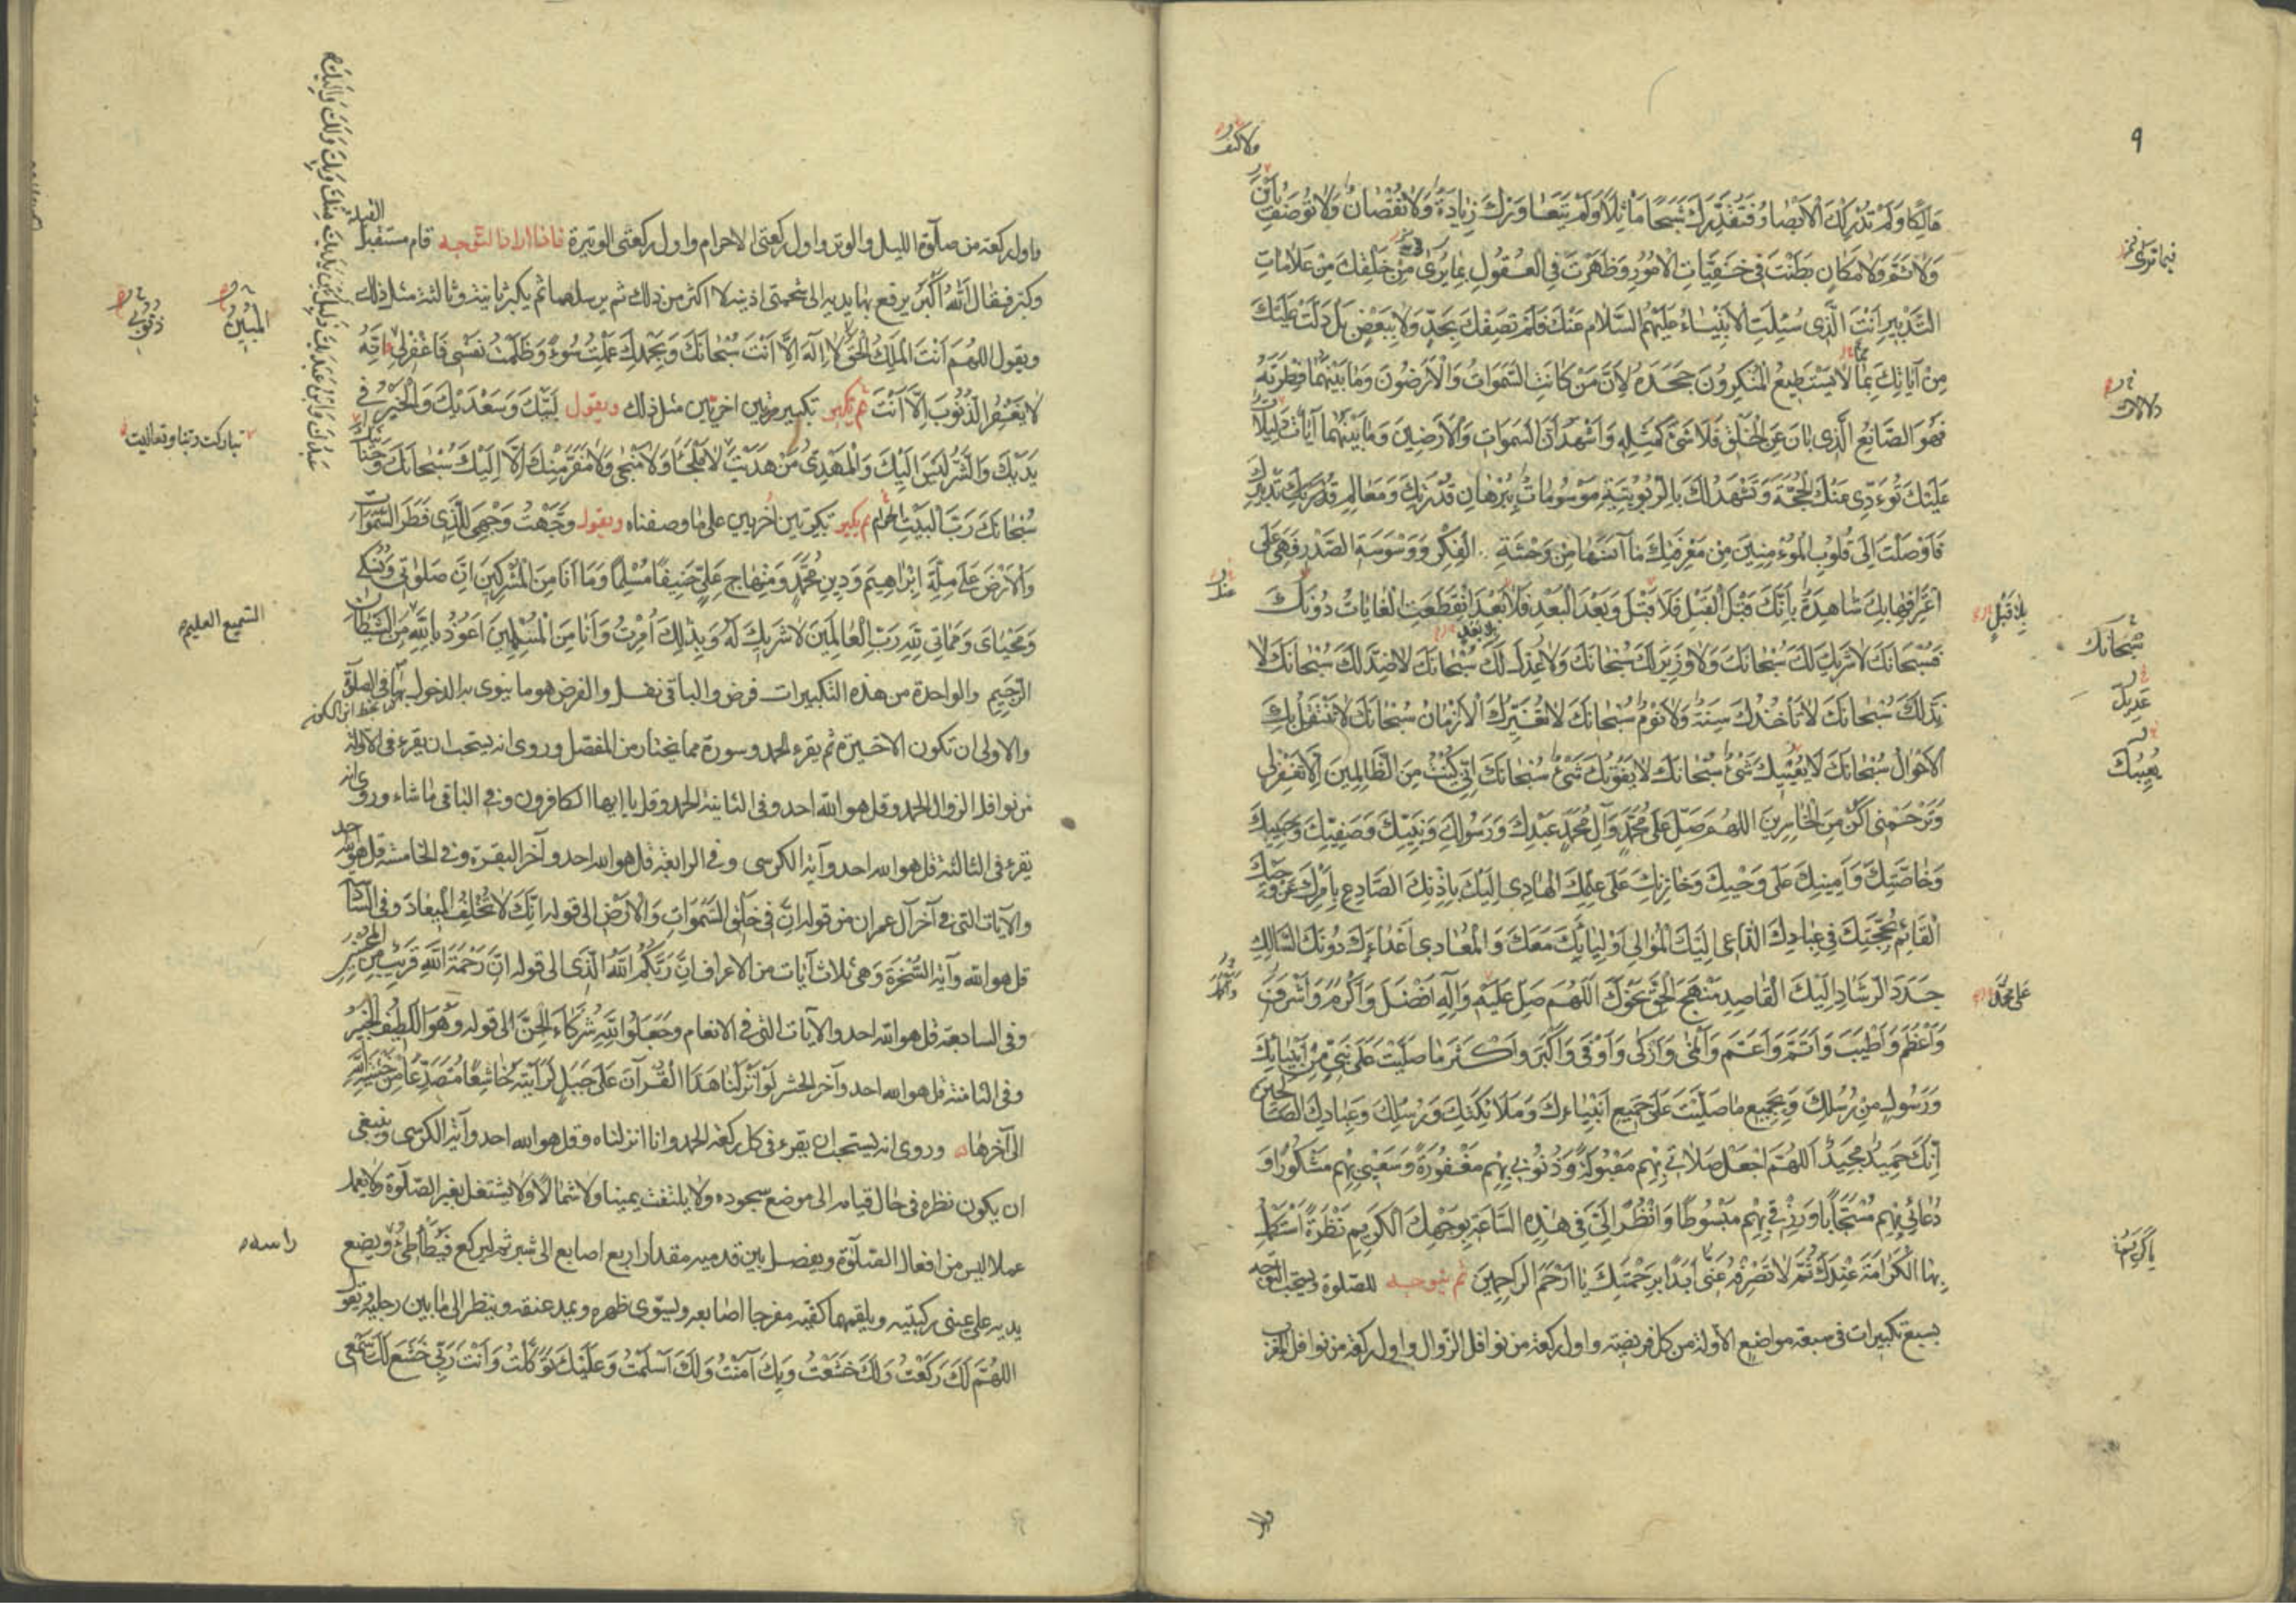 ٩
هَالِكًا وَلَمْ تُدْرِكْكَ الْاَبْصَارُ فَتُقَدِّرَكَ شَبَحًا مَاثِلًا وَلَمْ يَتَعَاوَرْكَ زِيَادَةٌ وَلَا نُقْصَانٌ وَلَا تُوصَفُ بِاَيْنٍ
وَلَا ثَمَّ وَلَا مَكَانٍ بَطَنْتَ فِي خَفِيَّاتِ الْاُمُورِ وَظَهَرْتَ فِي الْعُقُولِ بِمَا يُرَى مِنْ خَلْقِكَ مِنْ عَلَامَاتِ
التَّدْبِيرِ اَنْتَ الَّذِي سُئِلَتِ الْاَنْبِيَاءُ عَلَيْهِمُ السَّلَامُ عَنْكَ فَلَمْ تَصِفْكَ بِحَدٍّ وَلَا بِبَعْضٍ بَلْ دَلَّتْ عَلَيْكَ
مِنْ آيَاتِكَ بِمَا لَا يَسْتَطِيعُ الْمُنْكِرُونَ جَحْدَهُ لِاَنَّ مَنْ كَانَتِ السَّمَوَاتُ وَالْاَرَضُونَ وَمَا بَيْنَهُمَا فِطْرَتَهُ
فَهُوَ الصَّانِعُ الَّذِي بَانَ عَنِ الْخَلْقِ فَلَا شَيْءَ كَمِثْلِهِ وَاَشْهَدُ اَنَّ السَّمَوَاتِ وَالْاَرَضِينَ وَمَا بَيْنَهُمَا آيَاتٌ دَلِيلَاتٌ
عَلَيْكَ تُؤَدِّي عَنْكَ الْحُجَّةَ وَتَشْهَدُ لَكَ بِالرُّبُوبِيَّةِ مَوْسُومَاتٌ بِبُرْهَانِ قُدْرَتِكَ وَمَعَالِمِ تَدْبِيرِكَ
فَاَوْصَلْتَ اِلَى قُلُوبِ الْمُؤْمِنِينَ مِنْ مَعْرِفَتِكَ مَا آنَسَهَا مِنْ وَحْشَةِ الْفِكْرِ وَوَسْوَسَةِ الصَّدْرِ فَهِيَ عَلَى
اعْتِرَافِهَا بِكَ شَاهِدَةٌ بِاَنَّكَ قَبْلَ الْقَبْلِ فَلَا قَبْلَ وَبَعْدَ الْبَعْدِ فَلَا بَعْدَ انْقَطَعَتِ الْغَايَاتُ دُونَكَ
فَسُبْحَانَكَ لَا شَرِيكَ لَكَ سُبْحَانَكَ وَلَا وَزِيرَ لَكَ سُبْحَانَكَ وَلَا عِدْلَ لَكَ سُبْحَانَكَ لَا ضِدَّ لَكَ سُبْحَانَكَ لَا
نِدَّ لَكَ سُبْحَانَكَ لَا تَأْخُذُكَ سِنَةٌ وَلَا نَوْمٌ سُبْحَانَكَ لَا تُغَيِّرُكَ الْاَزْمَانُ سُبْحَانَكَ لَا تَنْتَقِلُ بِكَ
الْاَحْوَالُ سُبْحَانَكَ لَا يُعْيِيكَ شَيْءٌ سُبْحَانَكَ لَا يَفُوتُكَ شَيْءٌ سُبْحَانَكَ اِنِّي كُنْتُ مِنَ الظَّالِمِينَ اِلَّا تَغْفِرْ لِي
وَتَرْحَمْنِي اَكُنْ مِنَ الْخَاسِرِينَ اللَّهُمَّ صَلِّ عَلَى مُحَمَّدٍ وَآلِ مُحَمَّدٍ عَبْدِكَ وَرَسُولِكَ وَنَبِيِّكَ وَصَفِيِّكَ وَحَبِيبِكَ
وَخَاصَّتِكَ وَاَمِينِكَ عَلَى وَحْيِكَ وَخَازِنِكَ عَلَى عِلْمِكَ الْهَادِي اِلَيْكَ بِاِذْنِكَ الصَّادِعِ بِاَمْرِكَ عَنْ وَحْيِكَ
الْقَائِمِ بِحُجَّتِكَ فِي عِبَادِكَ الدَّاعِي اِلَيْكَ الْمُوَالِي اَوْلِيَائَكَ مَعَكَ وَالْمُعَادِي اَعْدَاءَكَ دُونَكَ السَّالِكِ
جَدَدَ الرَّشَادِ اِلَيْكَ الْقَاصِدِ مَنْهَجَ الْحَقِّ نَحْوَكَ اللَّهُمَّ صَلِّ عَلَيْهِ وَآلِهِ اَفْضَلَ وَاَكْرَمَ وَاَشْرَفَ
وَاَعْظَمَ وَاَطْيَبَ وَاَتَمَّ وَاَعَمَّ وَاَنْمَى وَاَزْكَى وَاَوْفَى وَاَكْبَرَ وَاَكْثَرَ مَا صَلَّيْتَ عَلَى نَبِيٍّ مِنْ اَنْبِيَائِكَ
وَرَسُولٍ مِنْ رُسُلِكَ وَبِجَمِيعِ مَا صَلَّيْتَ عَلَى جَمِيعِ اَنْبِيَاءِكَ وَمَلَائِكَتِكَ وَرُسُلِكَ وَعِبَادِكَ الصَّالِحِينَ
اِنَّكَ حَمِيدٌ مَجِيدٌ اَللَّهُمَّ اجْعَلْ صَلَاتِي بِهِمْ مَقْبُولَةً وَذُنُوبِي بِهِمْ مَغْفُورَةً وَسَعْيِي بِهِمْ مَشْكُورًا وَ
دُعَائِي بِهِمْ مُسْتَجَابًا وَرِزْقِي بِهِمْ مَبْسُوطًا وَانْظُرْ اِلَيَّ فِي هٰذِهِ السَّاعَةِ بِوَجْهِكَ الْكَرِيمِ نَظْرَةً اَسْتَكْمِلُ
بِهَا الْكَرَامَةَ عِنْدَكَ ثُمَّ لَا تَصْرِفْهُ عَنِّي اَبَدًا بِرَحْمَتِكَ يَا اَرْحَمَ الرَّاحِمِينَ ثم يتوجه للصلوة ويستحب التوجه
بسبع تكبيرات في سبعة مواضع الاولة من كل فريضة واول ركعة من نوافل الزوال واول ركعة من نوافل المغرب
فيما ترى
دلالات
بلا قَبْلٍ
سُبْحَانَكَ
عَدِيلَ
يُعِيبُكَ
عَلَى مُحَمَّدٍ
واول ركعة من صلوة الليل والوتر واول ركعتي الاحرام واول ركعتي الوتيرة فاذا اراد التوجه قام مستقبل القبلة
وكبر فقال اَللّٰهُ اَكْبَرُ يرفع بها يديه الى شحمتي اذنيه لا اكثر من ذلك ثم يرسلهما ثم يكبر ثانية وثالثة مثل ذلك
ويقول اللهُمَّ اَنْتَ الْمَلِكُ الْحَقُّ لَا اِلٰهَ اِلَّا اَنْتَ سُبْحَانَكَ وَبِحَمْدِكَ عَمِلْتُ سُوءً وَظَلَمْتُ نَفْسِي فَاغْفِرْ لِي اِنَّهُ
لَا يَغْفِرُ الذُّنُوبَ اِلَّا اَنْتَ ثم يكبر تكبيرتين اخريين مثل ذلك ويقول لَبَّيْكَ وَسَعْدَيْكَ وَالْخَيْرُ فِي
يَدَيْكَ وَالشَّرُّ لَيْسَ اِلَيْكَ وَالْمَهْدِيُّ مَنْ هَدَيْتَ لَا مَلْجَأَ وَلَا مَنْجَى وَلَا مَفَرَّ مِنْكَ اِلَّا اِلَيْكَ سُبْحَانَكَ وَحَنَانَيْكَ
سُبْحَانَكَ رَبَّ الْبَيْتِ الْحَرَامِ ثم يكبر تكبيرتين اُخريين على ما وصفناه ويقول وَجَّهْتُ وَجْهِيَ لِلَّذِي فَطَرَ السَّمَوَاتِ
وَالْاَرْضَ عَلَى مِلَّةِ اِبْرَاهِيمَ وَدِينِ مُحَمَّدٍ وَمِنْهَاجِ عَلِيٍّ حَنِيفًا مُسْلِمًا وَمَا اَنَا مِنَ الْمُشْرِكِينَ اِنَّ صَلٰوتِي وَنُسُكِي
وَمَحْيَايَ وَمَمَاتِي لِلّٰهِ رَبِّ الْعَالَمِينَ لَا شَرِيكَ لَهُ وَبِذٰلِكَ اُمِرْتُ وَاَنَا مِنَ الْمُسْلِمِينَ اَعُوذُ بِاللّٰهِ مِنَ الشَّيْطَانِ
الرَّجِيمِ والواحدة من هذه التكبيرات فرض والباقي نفل والفرض هو ما ينوي به الدخول في الصلوة
والاولى ان تكون الاخيرة ثم يقرء الحمد وسورة مما يختار من المفصل وروي انه يستحب ان يقرء في الاولة
من نوافل الزوال الحمد وقل هو الله احد وفي الثانية الحمد وقل يا ايها الكافرون وفي الباقي ما شاء وروي انه
يقرء في الثالثة قل هو الله احد وآية الكرسي وفي الرابعة قل هو الله احد وآخر البقرة وفي الخامسة قل هو الله احد
والآيات التي في آخر آل عمران من قوله اِنَّ فِي خَلْقِ السَّمَوَاتِ وَالْاَرْضِ الى قوله اِنَّكَ لَا تُخْلِفُ الْمِيعَادَ وفي السادسة
قل هو الله وآية السُّخْرَة وَهي ثلاث آيات من الاعراف اِنَّ رَبَّكُمُ اللّٰهُ الَّذِي الى قوله اِنَّ رَحْمَةَ اللّٰهِ قَرِيبٌ مِنَ الْمُحْسِنِينَ
وفي السابعة قل هو الله احد والآيات التي في الانعام وَجَعَلُوا لِلّٰهِ شُرَكَاءَ الْجِنَّ الى قوله وَهُوَ اللَّطِيفُ الْخَبِيرُ
وفي الثامنة قل هو الله احد وآخر الحشر لَوْ اَنْزَلْنَا هَذَا الْقُرْآنَ عَلَى جَبَلٍ لَرَاَيْتَهُ خَاشِعًا مُتَصَدِّعًا مِنْ خَشْيَةِ اللّٰهِ
الى آخرها وروي انه يستحب ان يقرء في كل ركعة الحمد وانا انزلناه وقل هو الله احد وآية الكرسي وينبغي
ان يكون نظره في حال قيامه الى موضع سجوده ولا يلتفت يمينا ولا شمالا ولا يشتغل بغير الصلوة ولا يعمل
عملا ليس من افعال الصلوة ويفصل بين قدميه مقدار اربع اصابع الى شبر ثم ليركع فَيُطَأْطِئُ ويضع
يديه على عيني ركبتيه ويلقمهما كفيه مفرجا اصابعه ويسوي ظهره ويمد عنقه وينظر الى ما بين رجليه ويقول
اللهُمَّ لَكَ رَكَعْتُ وَلَكَ خَشَعْتُ وَبِكَ آمَنْتُ وَلَكَ اَسْلَمْتُ وَعَلَيْكَ تَوَكَّلْتُ وَاَنْتَ رَبِّي خَشَعَ لَكَ سَمْعِي
الْمُبِينُ
ذُنُوبِي
تباركت ربنا وتعاليت
السميع العليم
راسه